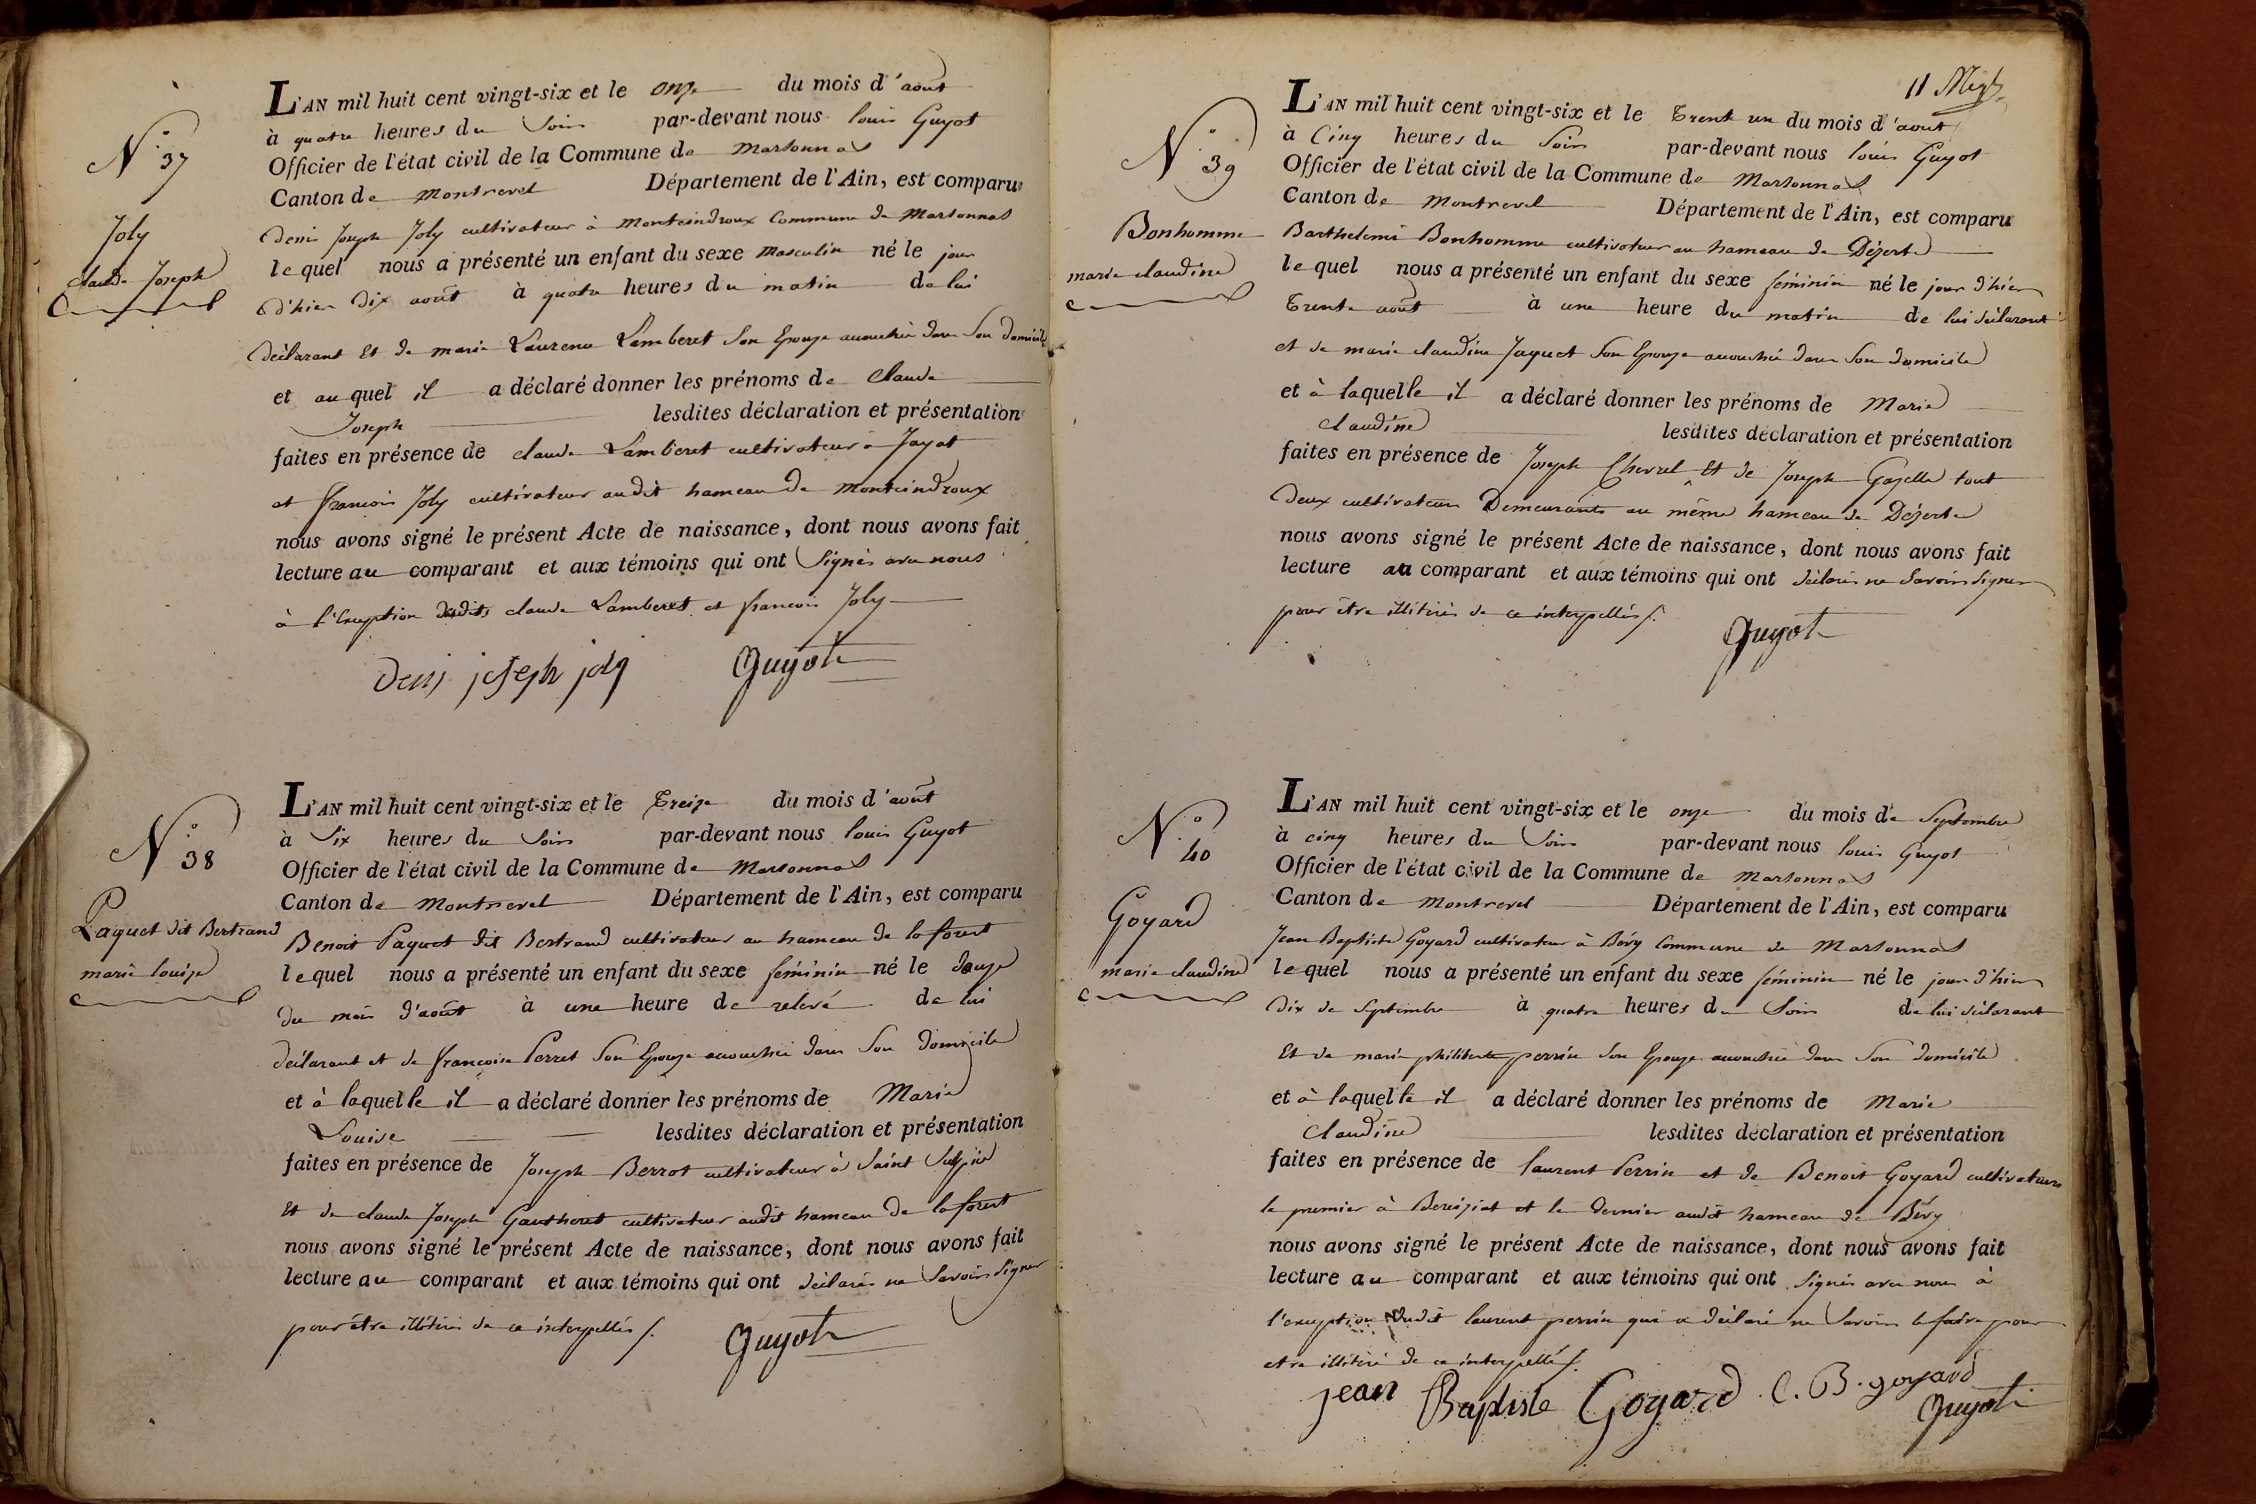 N.° 37
Joly
claude Joseph
L'AN mil huit cent vingt-six et le onze du mois d'août
à quatre heures du Soir par-devant nous louis Guyot
Officier de l'état civil de la Commune de Marsonnas
Canton de Montrevel Département de l'Ain, est comparu
Denis Joseph Joly cultivateur à Montceindroux Commune de Marsonnas
lequel nous a présenté un enfant du sexe masculin né le jour
d'hier Dix août à quatre heures du matin de lui
déclarant Et de marie Laurence Lamberet Son Epouze accouchée dans Son domicile
et auquel il a déclaré donner les prénoms de Claude
Joseph lesdites déclaration et présentation
faites en présence de claude Lamberet cultivateur à Jayat
et françois Joly cultivateur audit hameau de Montceindroux
nous avons signé le présent Acte de naissance, dont nous avons fait
lecture au comparant et aux témoins qui ont Signés avec nous
à l'Exception desdits claude Lamberet et francois Joly
denis joseph joly Guyot
N.° 38
Paquet dit Bertrand
marie louize
L'AN mil huit cent vingt-six et le Treize du mois d'août
à Six heures du Soir par-devant nous louis Guyot
Officier de l'état civil de la Commune de Marsonnas
Canton de Montrevel Département de l'Ain, est comparu
Benoit Paquet dit Bertrand cultivateur au hameau de la forest
lequel nous a présenté un enfant du sexe féminin né le douze
du mois d'août à une heure de relevé de lui
déclarant et de françoise Perret Son Epouze accouchée dans Son domicile
et à laquelle il a déclaré donner les prénoms de Marie
Louise lesdites déclaration et présentation
faites en présence de Joseph Berrot cultivateur à Saint Sulpice
Et de claude Joseph Gauthoret cultivateur audit hameau de la forest
nous avons signé le présent Acte de naissance, dont nous avons fait
lecture au comparant et aux témoins qui ont déclarés ne Savoir Signer
pour être illitérés de ce interpellés /.
Guyot
11
N.° 39
Bonhomme
marie claudine
L'AN mil huit cent vingt-six et le Trent un du mois d'aout
à Cinq heures du Soir par-devant nous louis Guyot
Officier de l'état civil de la Commune de Marsonnas
Canton de Montrevel Département de l'Ain, est comparu
Barthelemi Bonhomme cultivateur au hameau de Dézerte
lequel nous a présenté un enfant du sexe féminin né le jour d'hier
Trente août à une heure du matin de lui déclarant
et de marie claudine Jaquet Son Epouze accouchée dans Son domicile
et à laquelle il a déclaré donner les prénoms de Marie
claudine lesdites déclaration et présentation
faites en présence de Joseph Chevrel Et de Joseph Gazelle tout
deux cultivateurs Demeurants au même hameau de Dézerte
nous avons signé le présent Acte de naissance, dont nous avons fait
lecture au comparant et aux témoins qui ont déclarés ne Savoir Signer
pour être illitérés de ce interpellés /.
Guyot
N.° 40
Goyard
marie claudine
L'AN mil huit cent vingt-six et le onze du mois de Septembre
à cinq heures du Soir par-devant nous louis Guyot
Officier de l'état civil de la Commune de Marsonnas
Canton de Montrevel Département de l'Ain, est comparu
Jean Baptiste Goyard cultivateur à Bévy Commune de Marsonnas
lequel nous a présenté un enfant du sexe féminin né le jour d'hier
Dix de Septembre à quatre heures du Soir de lui déclarant
Et de marie philiberte perrin Son Epouze accouchée dans Son domicile
et à laquelle il a déclaré donner les prénoms de Marie
Claudine lesdites déclaration et présentation
faites en présence de laurent Perrin et de Benoit Goyard cultivateurs
le premier à Bereiziat et le dernier audit hameau de Bévy
nous avons signé le présent Acte de naissance, dont nous avons fait
lecture au comparant et aux témoins qui ont Signés avec nous à
l'exception dudit laurent perrin qui a déclaré ne Savoir le faire pour
etre illitéré de ce interpellé /.
jean Baptiste Goyard C. B. goyard
Guyot